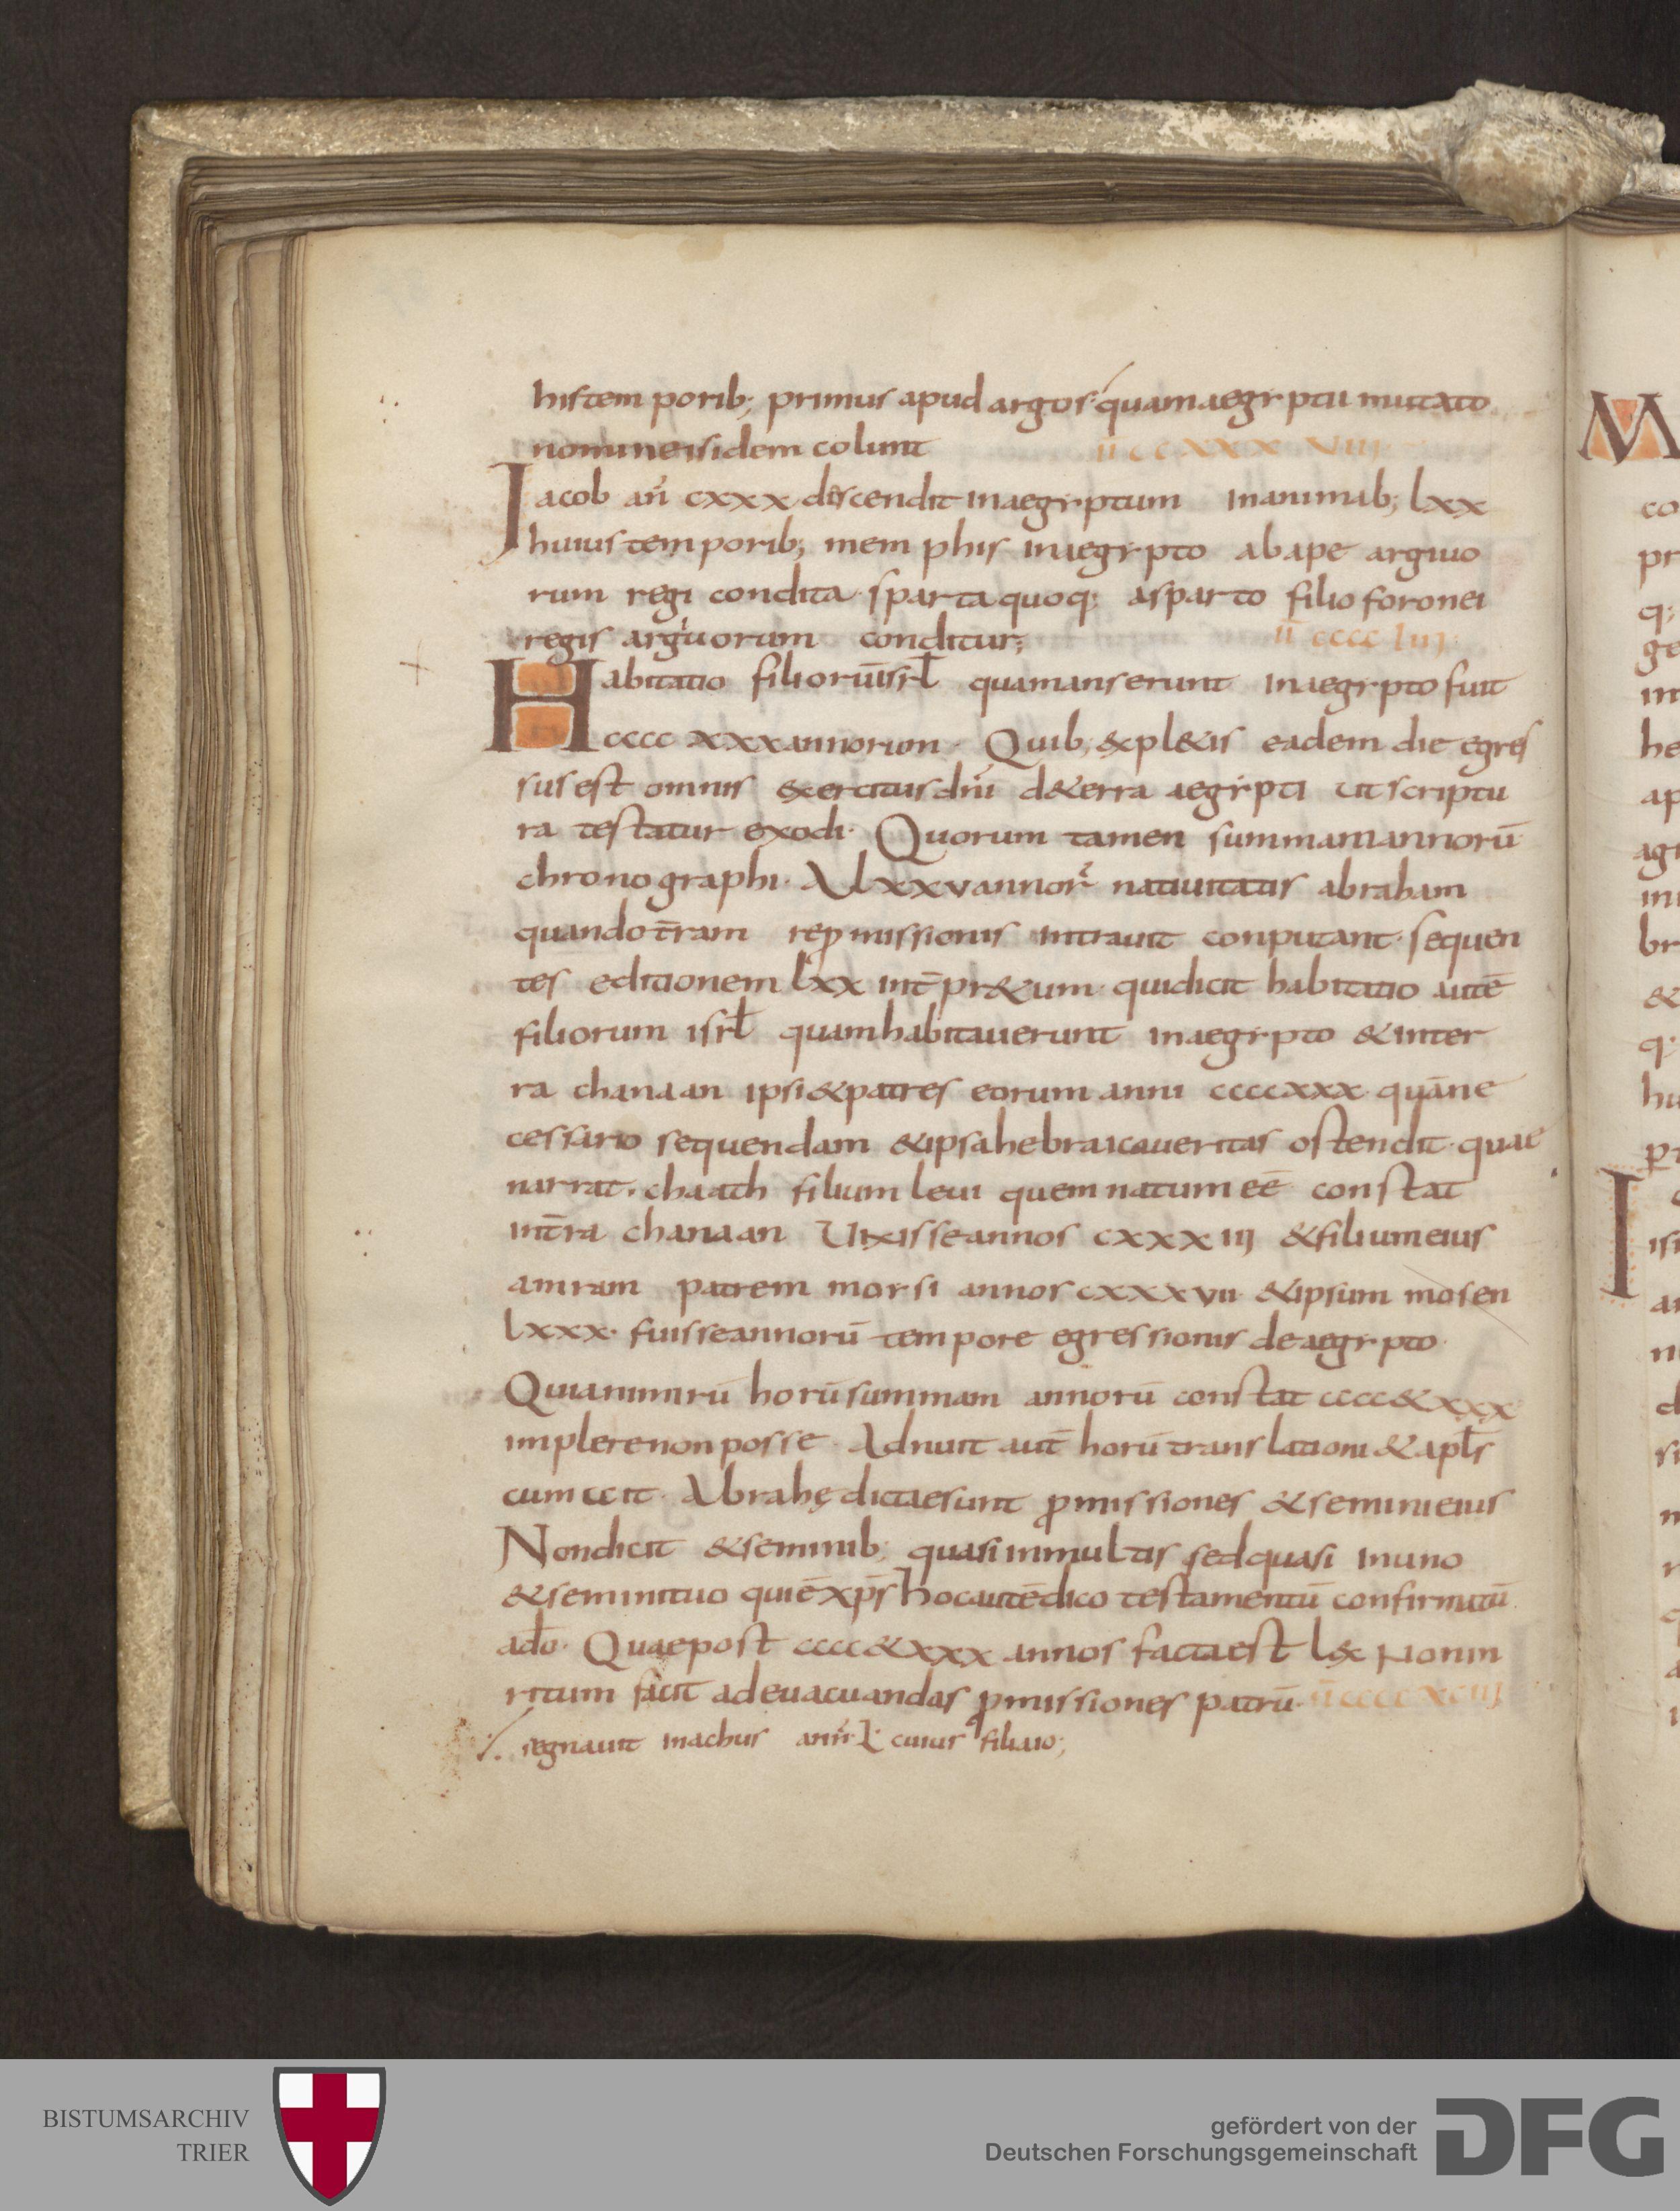 his tem porib; primus apud argos quam aegyptii mutato
nomine isidem colunt II CCXXXVIII
Jacob an̄ cxxx discendit in aegyptum in animab; lxx
huius tem porib; mem phis in aegypto ab ape argiuo
rum regi condita sparta quoq; a sparto filio foronei
regis argiuorum conditur; II CCCC LIII
Habitatio filiorū isrl̄ qua manserunt in aegypto fuit
cccc xxx annorum. Quib; expl&is eadem die egres
sus est omnis exercitus dn̄i de terra aegypti ut scriptu
ra testatur exodi. Quorum tamen summam annorū
chrono graphi. A lxxv annor natiuitatis abraham
quando tr̄am rep missionis intrauit conputant. sequen
tes editionem lxx int̄ pr&um. qui dicit habitatio autē
filiorum isrl̄ quam habitauerunt in aegypto & in ter
ra chanaan ipsi & patres eorum anni cccc xxx. quā ne
cessario sequendam & ipsa hebraica ueritas ostendit. quae
narrat. chaath filium leui quem natum eē constat
in tr̄a chanaan Uixisse annos cxxxiij & filium eius
amram patrem moysi annos cxxxvii & ipsum mosen
lxxx. fuisse annorū tempore egressionis de aegypto.
Quia nimirū horū summam annorū constat cccc & xxx
implere non posse. Adnuit aut̄ horū translationi & apl̄s
cum ait. Abrahę dictae sunt promissiones & semini eius
Non dicit & seminib; quasi in multis sed quasi in uno
& semini tuo qui ē xp̄s hoc autē dico testamentū confirmatū
a dō. Quae post cccc & xxx annos facta est l& Non in
ritum facit ad euacuandas promissiones patrū. II CCCC XCIII
regnauit inachus ann̄. L. cuius filia io;
M
BISTUMSARCHIV
TRIER
gefördert von der
Deutschen Forschungsgemeinschaft
DFG